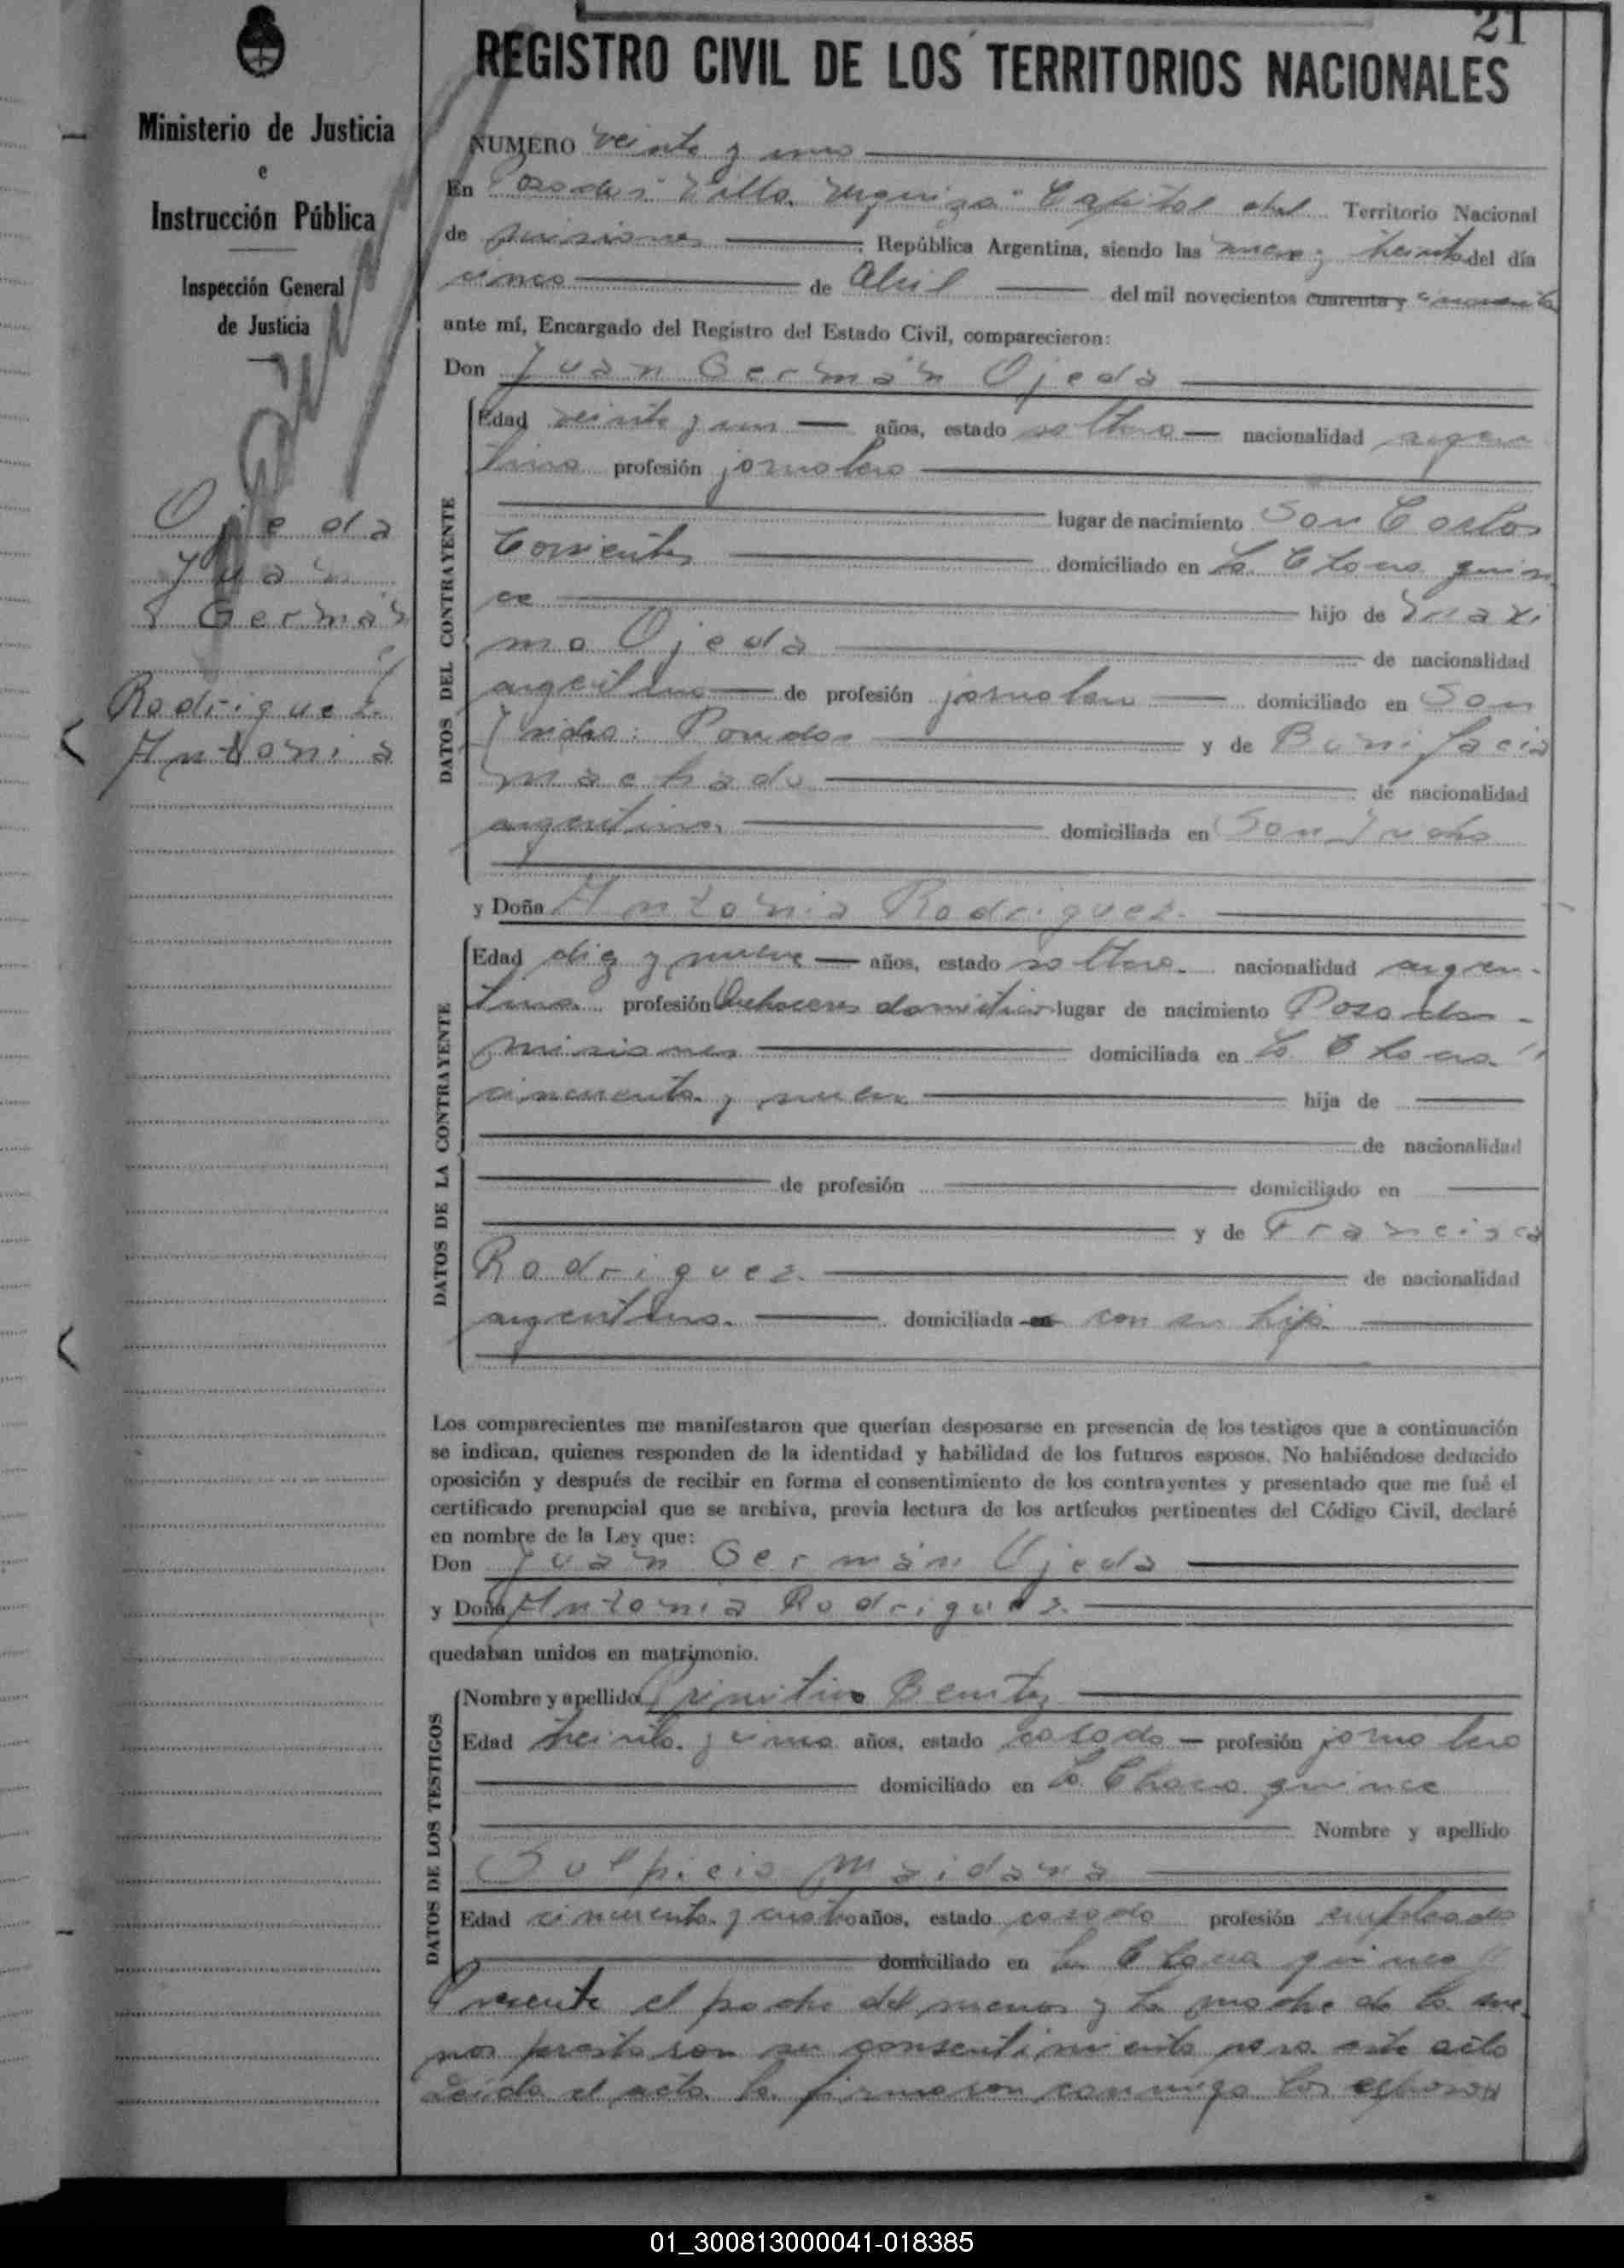 21
REGISTRO CIVIL DE LOS TERRITORIOS NACIONALES
Ministerio de Justicia
e
Instrucción Pública
Inspección General
de Justicia
Ojeda
Juan
German
y
Rodriguez
Antonia
NUMERO veinte y uno
En Posadas "Villa Urquiza" Capital del Territorio Nacional
de Misiones República Argentina, siendo las nueve y treinta del día
cinco de Abril del mil novecientos cuarenta y cincuenta
ante mí, Encargado del Registro del Estado Civil, comparecieron:
Don Juan Germán Ojeda
DATOS DEL CONTRAYENTE
Edad veinte y un años, estado soltero nacionalidad argen
tino profesión jornalero
lugar de nacimiento San Carlos
Corrientes domiciliado en La Chacra quin
ce hijo de Maxi
mo Ojeda de nacionalidad
argentino de profesión jornalero domiciliado en San
Isidro: Posadas y de Bonifacia
Machado de nacionalidad
argentina domiciliada en San Isidro
y Doña Antonia Rodriguez
DATOS DE LA CONTRAYENTE
Edad diez y nueve años, estado soltera nacionalidad argen-
tina profesión Quehaceres domésticos lugar de nacimiento Posadas -
Misiones domiciliada en La Chacra
cincuenta y nueve hija de
de nacionalidad
de profesión domiciliado en
y de Francisca
Rodriguez de nacionalidad
argentina domiciliada en con su hija
Los comparecientes me manifestaron que querían desposarse en presencia de los testigos que a continuación
se indican, quienes responden de la identidad y habilidad de los futuros esposos. No habiéndose deducido
oposición y después de recibir en forma el consentimiento de los contrayentes y presentado que me fué el
certificado prenupcial que se archiva, previa lectura de los artículos pertinentes del Código Civil, declaré
en nombre de la Ley que:
Don Juan Germán Ojeda
y Doña Antonia Rodriguez
quedaban unidos en matrimonio.
DATOS DE LOS TESTIGOS
Nombre y apellido Primitivo Benitez
Edad treinta y cinco años, estado casado profesión jornalero
domiciliado en La Chacra quince
Nombre y apellido
Sulpicio Maidana
Edad cincuenta y cuatro años, estado casado profesión empleado
domiciliado en La Chacra quince
Presente el padre del menor y la madre de la me
nor prestaron su consentimiento para este acto
Leida el acta la firmaron conmigo los esposos
01_300813000041-018385